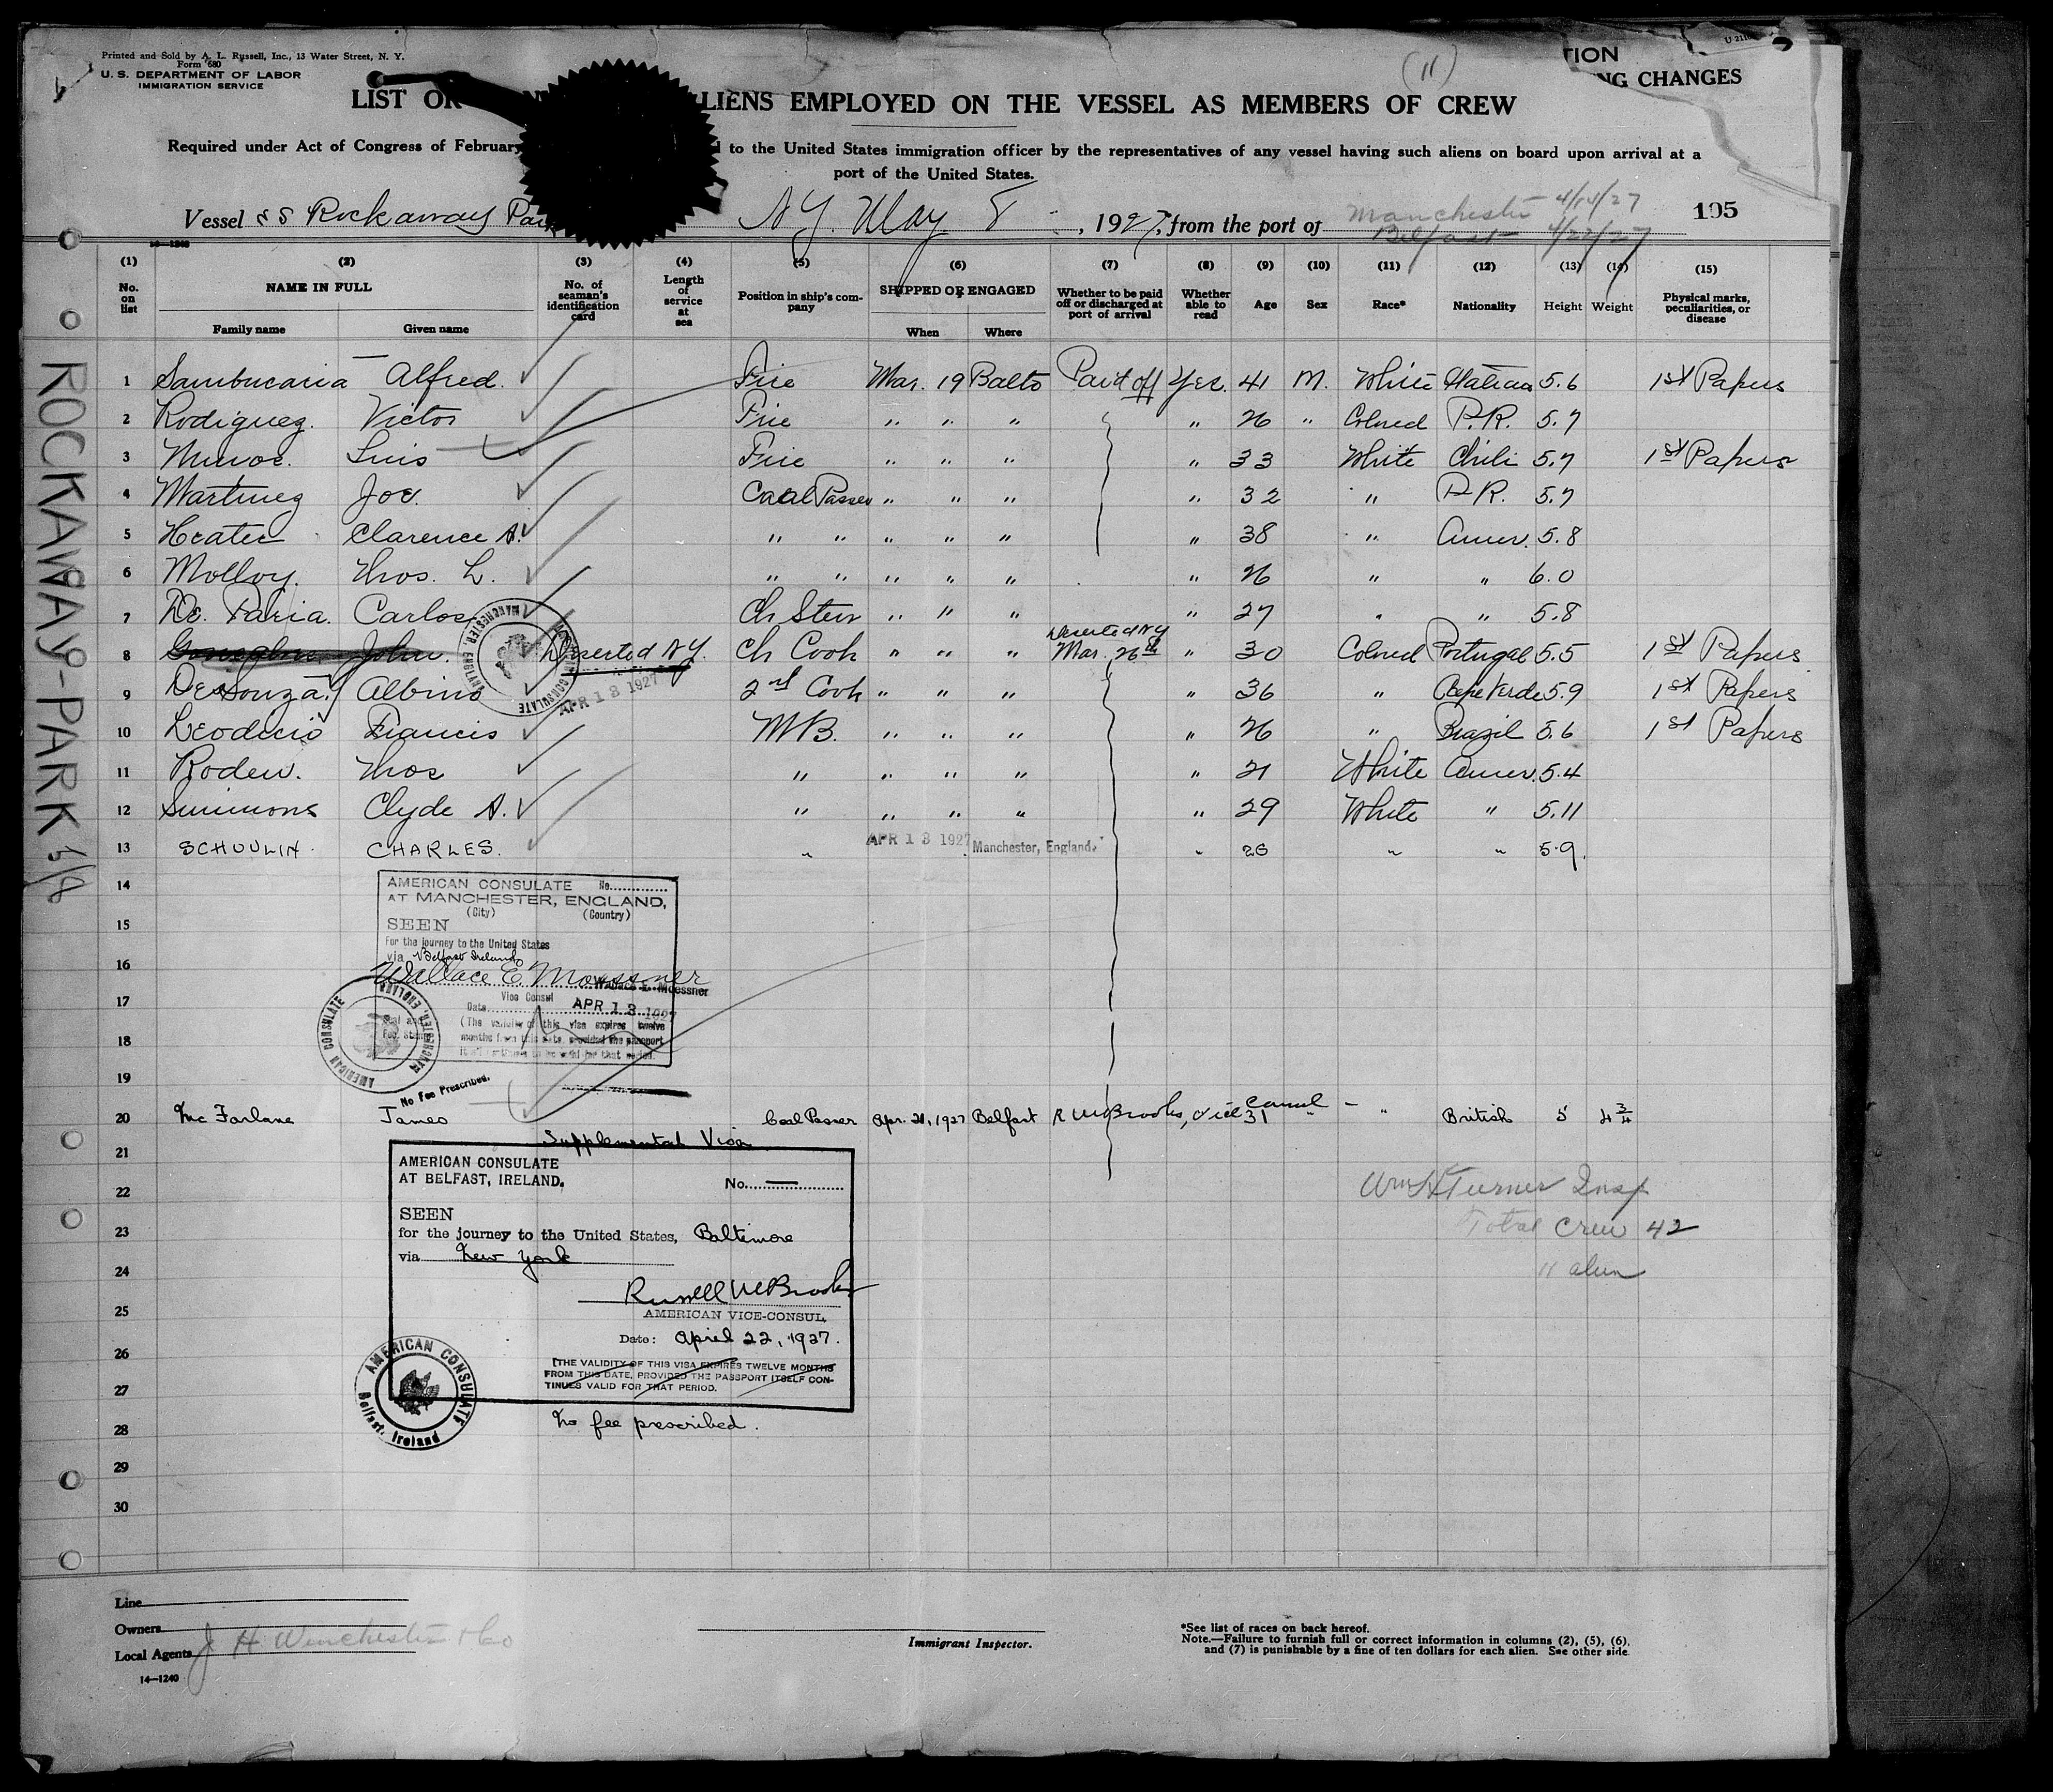 Printed and Sold by A. L. Russell, Inc., 13 Water Street, N. Y.
Form 680
U. S. DEPARTMENT OF LABOR
IMMIGRATION SERVICE
(11)
TION
NG CHANGES
LIST OR LIENS EMPLOYED ON THE VESSEL AS MEMBERS OF CREW
Required under Act of Congress of February to the United States immigration officer by the representatives of any vessel having such aliens on board upon arrival at a
port of the United States.
Vessel SS Rockaway Par N.Y. May 8, 1927, from the port of Manchester 4/14/27
Belfast 4/22/27
105
14—1240
(1) (2) (3) (4) (5) (6) (7) (8) (9) (10) (11) (12) (13) (14) (15)
No. on list
NAME IN FULL
Family name
Given name
No. of seaman's identification card
Length of service at sea
Position in ship's company
SHIPPED OR ENGAGED
When
Where
Whether to be paid off or discharged at port of arrival
Whether able to read
Age
Sex
Race*
Nationality
Height
Weight
Physical marks, peculiarities, or disease
1 Sambucaria Alfred. Fire Mar. 19 Balto Paid off Yes. 41 M. White Italian 5.6 1st Papers
2 Rodiguez. Victor Fire " " " " 26 " Colored P.R. 5.7
3 Munoz. Luis Fire " " " " 33 White Chili 5.7 1st Papers
4 Martinez Joe. Coal Passer " " " " 32 " P.R. 5.7
5 Heater Clarence A. " " " " " " 38 " Amer. 5.8
6 Molloy. Thos. L. " " " " " " 26 " " 6.0
7 De. Faria. Carlos Ch Stew " " " " 27 " " 5.8
8 John. Deserted N.Y. Ch Cook " " " Deserted NY Mar. 26th " 30 Colored Portugal 5.5 1st Papers
9 De Souza. Albino 2nd Cook " " " " 36 " Cape Verde 5.9 1st Papers
10 Leodicio Francis M.B. " " " " 26 " Brazil 5.6 1st Papers
11 Roden. Thos " " " " " 21 White Amer. 5.4
12 Simmons Clyde A. " " " " " 29 White " 5.11
13 SCHOULIN. CHARLES. " APR 13 1927 Manchester, England. " 26 " " 5.9.
AMERICAN CONSULATE MANCHESTER, ENGLAND
APR 13 1927
14
15
16
17
18
19
AMERICAN CONSULATE No.
AT MANCHESTER, ENGLAND,
(City) (Country)
SEEN
For the journey to the United States
via Belfast Ireland
Wallace E. Moessner
Wallace E. Moessner
Vice Consul
Date APR 13 1927
(The validity of this vise expires twelve
months from this date, provided the passport
AMERICAN CONSULATE MANCHESTER, ENGLAND
No Fee Prescribed.
20 Mc Farlane James Coal Passer Apr. 21, 1927 Belfast R W Brooks, Vice Consul 31 " – " British 5 4 3/4
Supplemental Visa
21
22
23
24
25
26
27
28
29
30
AMERICAN CONSULATE
AT BELFAST, IRELAND. No. —
SEEN
for the journey to the United States, Baltimore
via New York
Russell M Brooks
AMERICAN VICE-CONSUL
Date: April 22, 1927.
(THE VALIDITY OF THIS VISA EXPIRES TWELVE MONTHS
FROM THIS DATE, PROVIDED THE PASSPORT ITSELF CON-
TINUES VALID FOR THAT PERIOD.
AMERICAN CONSULATE
Belfast, Ireland
No fee prescribed.
Wm H Turner Insp
Total Crew 42
11 alien
ROCKAWAY-PARK 5/8
Line
Owners
Local Agents J H Winchester & Co
14—1240
Immigrant Inspector.
*See list of races on back hereof.
Note.—Failure to furnish full or correct information in columns (2), (5), (6),
and (7) is punishable by a fine of ten dollars for each alien. See other side.